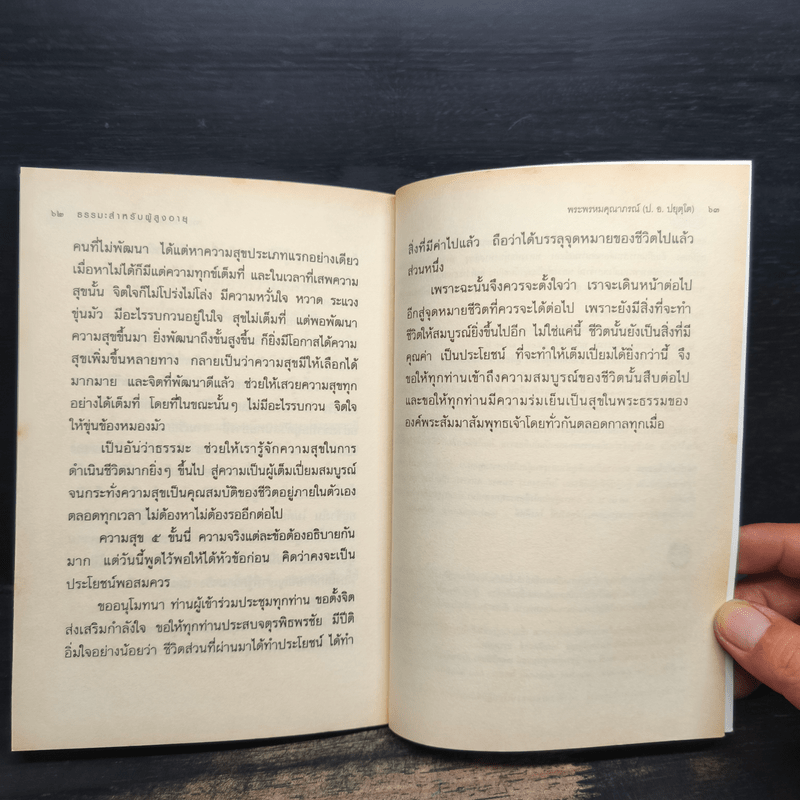 ๖๒ ธรรมะสำหรับผู้สูงอายุ
คนที่ไม่พัฒนา ได้แต่หาความสุขประเภทแรกอย่างเดียว
เมื่อหาไม่ได้ก็มีแต่ความทุกข์เต็มที่ และในเวลาที่เสพความ
สุขนั้น จิตใจก็ไม่โปร่งไม่โล่ง มีความหวั่นใจ หวาด ระแวง
ขุ่นมัว มีอะไรรบกวนอยู่ในใจ สุขไม่เต็มที่ แต่พอพัฒนา
ความสุขขึ้นมา ยิ่งพัฒนาถึงขั้นสูงขึ้น ก็ยิ่งมีโอกาสได้ความ
สุขเพิ่มขึ้นหลายทาง กลายเป็นว่าความสุขมีให้เลือกได้
มากมาย และจิตที่พัฒนาดีแล้ว ช่วยให้เสวยความสุขทุก
อย่างได้เต็มที่ โดยที่ในขณะนั้นๆ ไม่มีอะไรรบกวน จิตใจ
ให้ขุ่นข้องหมองมัว
เป็นอันว่าธรรมะ ช่วยให้เรารู้จักความสุขในการ
ดำเนินชีวิตมากยิ่งๆ ขึ้นไป สู่ความเป็นผู้เต็มเปี่ยมสมบูรณ์
จนกระทั่งความสุขเป็นคุณสมบัติของชีวิตอยู่ภายในตัวเอง
ตลอดทุกเวลา ไม่ต้องหาไม่ต้องรออีกต่อไป
ความสุข ๕ ขั้นนี้ ความจริงแต่ละข้อต้องอธิบายกัน
มาก แต่วันนี้พูดไว้พอให้ได้หัวข้อก่อน คิดว่าคงจะเป็น
ประโยชน์พอสมควร
ขออนุโมทนา ท่านผู้เข้าร่วมประชุมทุกท่าน ขอตั้งจิต
ส่งเสริมกำลังใจ ขอให้ทุกท่านประสบจตุรพิธพรชัย มีปีติ
อิ่มใจอย่างน้อยว่า ชีวิตส่วนที่ผ่านมาได้ทำประโยชน์ ได้ทำ
พระพรหมคุณาภรณ์ (ป. อ. ปยุตฺโต) ๖๓
สิ่งที่มีค่าไปแล้ว ถือว่าได้บรรลุจุดหมายของชีวิตไปแล้ว
ส่วนหนึ่ง
เพราะฉะนั้นจึงควรจะตั้งใจว่า เราจะเดินหน้าต่อไป
อีกสู่จุดหมายชีวิตที่ควรจะได้ต่อไป เพราะยังมีสิ่งที่จะทำ
ชีวิตให้สมบูรณ์ยิ่งขึ้นไปอีก ไม่ใช่แค่นี้ ชีวิตนั้นยังเป็นสิ่งที่มี
คุณค่า เป็นประโยชน์ ที่จะทำให้เต็มเปี่ยมได้ยิ่งกว่านี้ จึง
ขอให้ทุกท่านเข้าถึงความสมบูรณ์ของชีวิตนั้นสืบต่อไป
และขอให้ทุกท่านมีความร่มเย็นเป็นสุขในพระธรรมของ
องค์พระสัมมาสัมพุทธเจ้าโดยทั่วกันตลอดกาลทุกเมื่อ